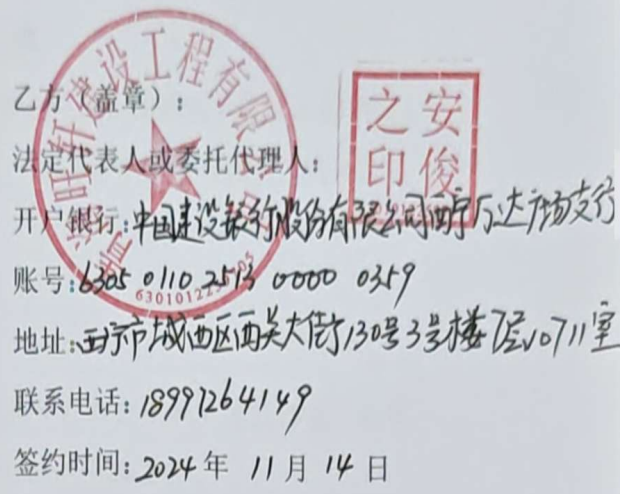 乙方（盖章）：
法定代表人或委托代理人：
开户银行：中国建设银行股份有限公司西宁万达广场支行
账号：6305 0110 2513 0000 0359
地址：西宁市城西区西关大街130号3号楼7层10711室
联系电话：18997264149
签约时间：2024年 11月 14日
旺轩建设工程有限
安俊之印